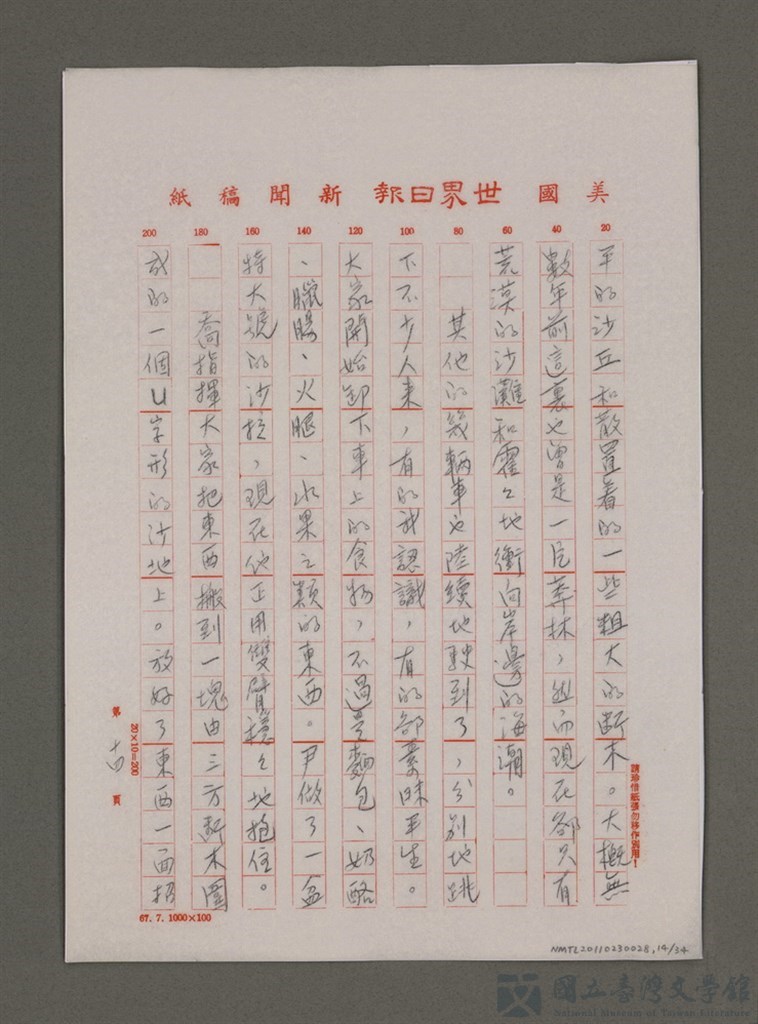 美國世界日報新聞稿紙
20 40 60 80 100 120 140 160 180 200
平的沙丘和散置着的一些粗大的断木。大概無
數年前這裏也曾是一片叢林,然而現在卻只有
荒漠的沙灘和霍々地衝向岸邊的海潮。
其他的幾輛車也陸續地駛到了,分別地跳
下不少人來,有的我認識,有的卻素昧平生。
大家開始卸下車上的食物,不過是麵包、奶酪
、臘腸、火腿、水果之類的東西。尹做了一盆
特大號的沙拉,現在他正用雙臂穩々地抱住。
喬指揮大家把東西搬到一塊由三方断木圍
成的一個U字形的沙地上。放好了東西一面招
請珍惜紙張勿移作別用!
20×10=200
第 頁
67.7.1000×100
NMTL20110230028,14/34
國立臺灣文學館
National Museum of Taiwan Literature